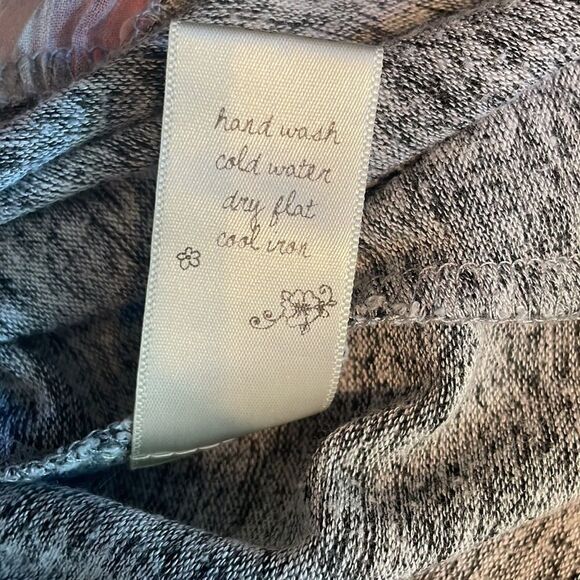 hand wash
cold water
dry flat
cool iron